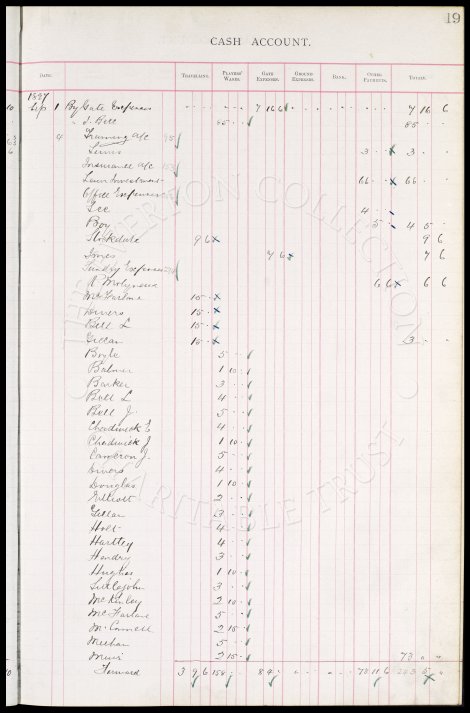 19
CASH ACCOUNT.
DATE. TRAVELLING. PLAYERS' WAGES. GATE EXPENSES. GROUND EXPENSES. BANK. OTHER PAYMENTS. TOTAL.
1897
Sep 1 By Gate Expenses 7 16 6 7 16 6
" J. Bell 85 85
4 Training a/c
Lewis 3 3
Insurance a/c
Loan Investment 66 66
Office Expenses
Lee 4
Boy 5 4 5
Stockdale 9 6 9 6
Jones 7 6 7 6
Sundry Expenses
R Molyneux 6 6 6 6
McFarlane 15
Divers 15
Bell L 15
Gillan 15 3
Boyle 5
Balmer 1 10
Barker 3
Bell L 4
Bell J. 5
Chadwick E 4
Chadwick J 1 10
Cameron J. 5
Divers 4
Douglas 1 10
Elliott 2
Gillan 3
Holt 4
Hartley 4
Hendry 3
Hughes 1 10
Littlejohn 3
McKinley 2 10
McFarlane 5
McConnell 2 15
Meehan 5
Muir 2 15 73 " "
Forward 3 9 6 158 8 4 73 11 6 5
THE EVERTON COLLECTION
CHARITABLE TRUST